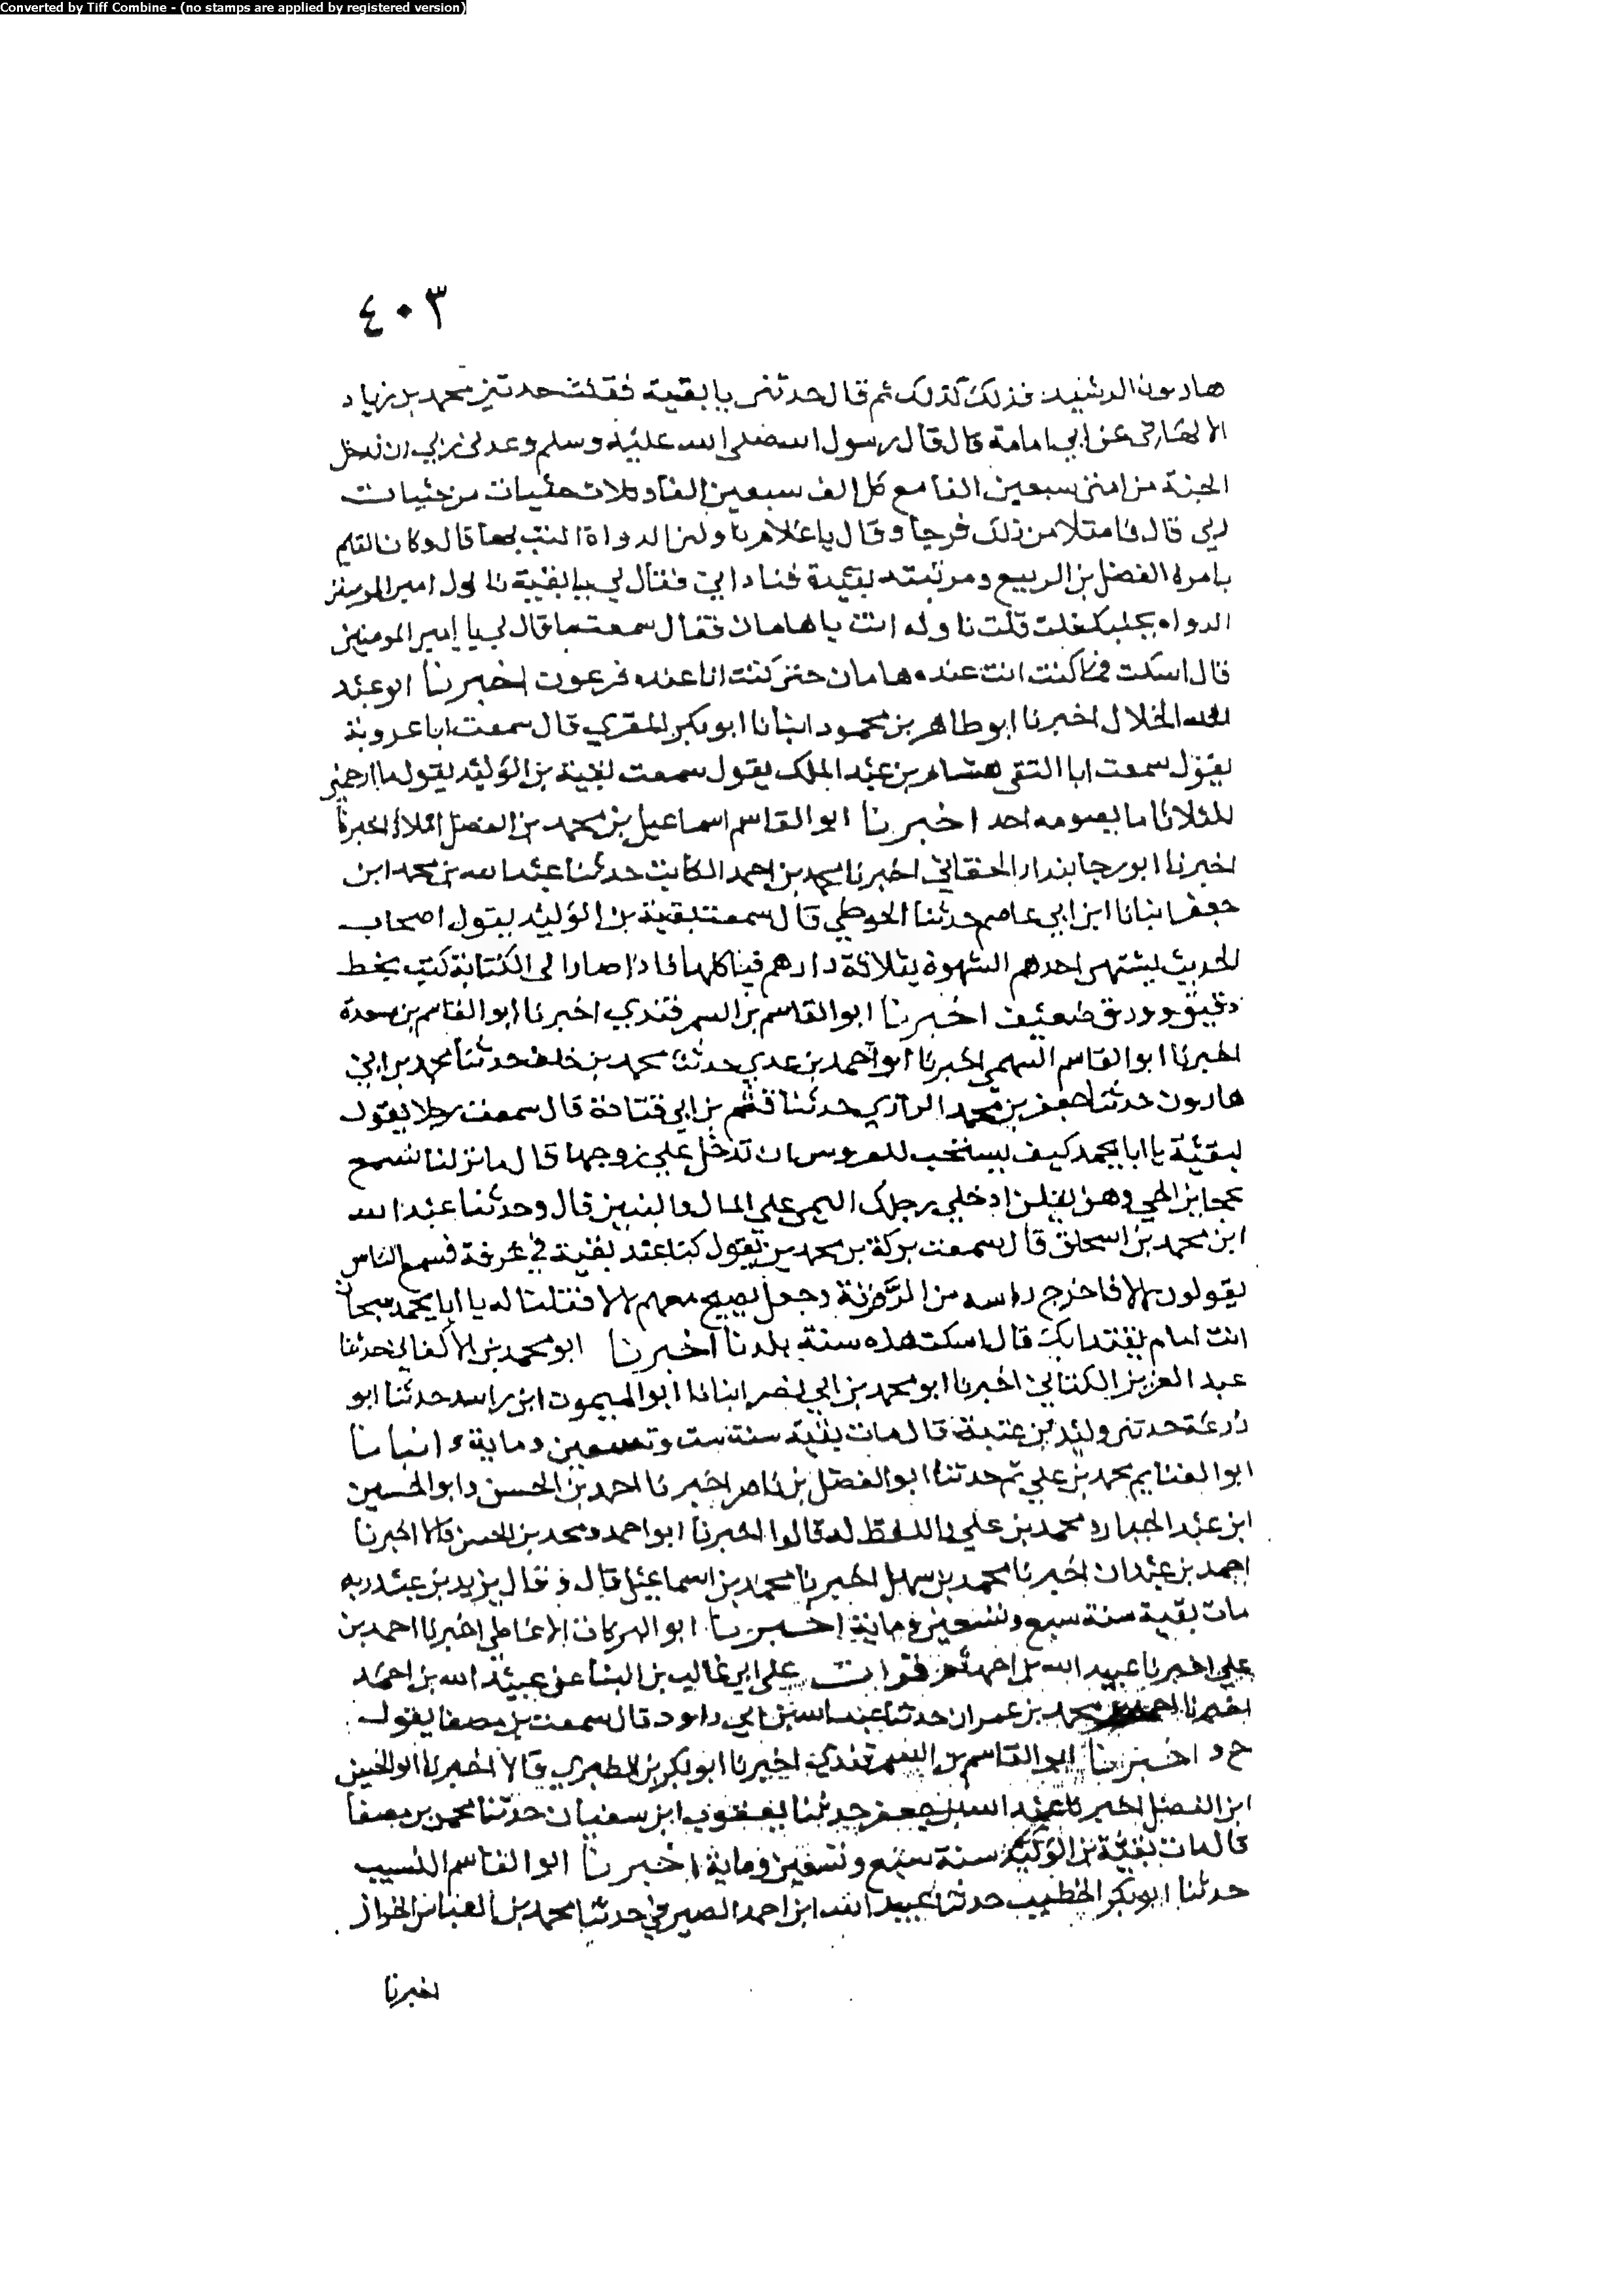 Converted by Tiff Combine - (no stamps are applied by registered version)
٤٠٣
هارون الرشيد فذلك كذلك ثم قال حدثني يا بقية فقلت حدثني محمد بن زياد
الالهاني عن ابي امامة قال قال رسول الله صلى الله عليه وسلم وعدني ربي ان يدخل
الجنة من امتي سبعين الفا مع كل الف سبعين الفا وثلاث حثيات من حثيات
ربي قال فامتلا من ذلك فرحا وقال يا غلام ناولني الدواة اكتب بها قال وكان القيم
بامره الفضل بن الربيع ومرتبته بعيدة فناداني فقال لي يا بقية ناول امير المومنين
الدواه بجنبك قلت ناوله انت يا هامان فقال سمعت ما قال لي يا امير المومنين
قال اسكت فما كنت انت عنده هامان حتى كنت انا عنده فرعون اخبرنا ابو عبد
الله الخلال اخبرنا ابو طاهر بن محمود انبانا ابو بكر المقري قال سمعت ابا عروبة
يقول سمعت ابا التقى هشام بن عبد الملك يقول سمعت بقية بن الوليد يقول ما ارحمني
للثلاثا ما يصومه احد اخبرنا ابو القاسم اسماعيل بن محمد بن الفضل املاء اخبرنا
اخبرنا ابو رجا بندار الخلقاني اخبرنا محمد بن احمد الكاتب حدثنا عبد الله بن محمد ابن
جعفر انبانا ابن ابي عاصم حدثنا الحوطي قال سمعت بقية بن الوليد يقول اصحاب
الحديث يشتهي احدهم الشهوة بثلاثة دارهم فياكلها فاذا صار الى الكتابة كتب بخط
دقيق وورق ضعيف اخبرنا ابو القاسم بن السمرقندي اخبرنا ابو القاسم بن مسعدة
اخبرنا ابو القاسم السهمي اخبرنا ابو احمد بن عدي حدثنا محمد بن خلف حدثنا محمد بن ابي
هارون حدثنا جعفر بن محمد الرازي حدثنا قثم بن ابي قتادة قال سمعت رجلا يقول
لبقية يا ابا محمد كيف يستحب للعروس ان تدخل علي زوجها قال ما نزلنا نسمع
عجايز الحي وهن يقلن ادخلي رجلك اليمى علي المال والبنين قال وحدثنا عبد الله
ابن محمد بن اسحاق قال سمعت بركة بن محمد بن يقول كنا عند بقية في غرفة فسمع الناس
يقولون لا لا فاخرج راسه من الروزنة وجعل يصيح معهم لا لا فقلت له يا ابا محمد سبحان
انت امام يقتدا بك قال اسكت هذه سنة بلدنا اخبرنا ابو محمد بن الاكفاني حدثنا
عبد العزيز الكتاني اخبرنا ابو محمد بن ابي نصر انبانا ابو الميمون ابن راشد حدثنا ابو
زرعة حدثني وليد بن عتبة قال مات بقية سنة ست وتسعين وماية وانبانا
ابو الغنايم محمد بن علي ثم حدثنا ابو الفضل بن ناصر اخبرنا احمد بن الحسن وابو الحسين
ابن عبد الجبار ومحمد بن علي واللفظ له قالوا اخبرنا ابو احمد ومحمد بن الحسن قالا اخبرنا
احمد بن عبدان اخبرنا محمد بن سهل اخبرنا محمد بن اسماعيل قال قال يزيد بن عبد ربه
مات بقية سنة سبع وتسعين وماية اخبرنا ابو البركات الانماطي اخبرنا احمد بن
علي اخبرنا عبيد الله بن احمد ثم قرات علي ابي غالب بن البنا عن عبيد الله بن احمد
اخبرنا محمد بن عمران حدثنا عبد الله بن ابي داود قال سمعت بن مصفا يقول
ح و اخبرنا ابو القاسم بن السمرقندي اخبرنا ابو بكر بن الطبري قالا اخبرنا ابو الحسين
ابن الفضل اخبرنا عبد الله بن جعفر حدثنا يعقوب ابن سفيان حدثنا محمد بن مصفا
قال مات بقية بن الوليد سنة سبع وتسعين وماية اخبرنا ابو القاسم النسيب
حدثنا ابو بكر الخطيب حدثنا عبيد الله ابن احمد الصيرفي حدثنا محمد بن العباس الخزاز
اخبرنا